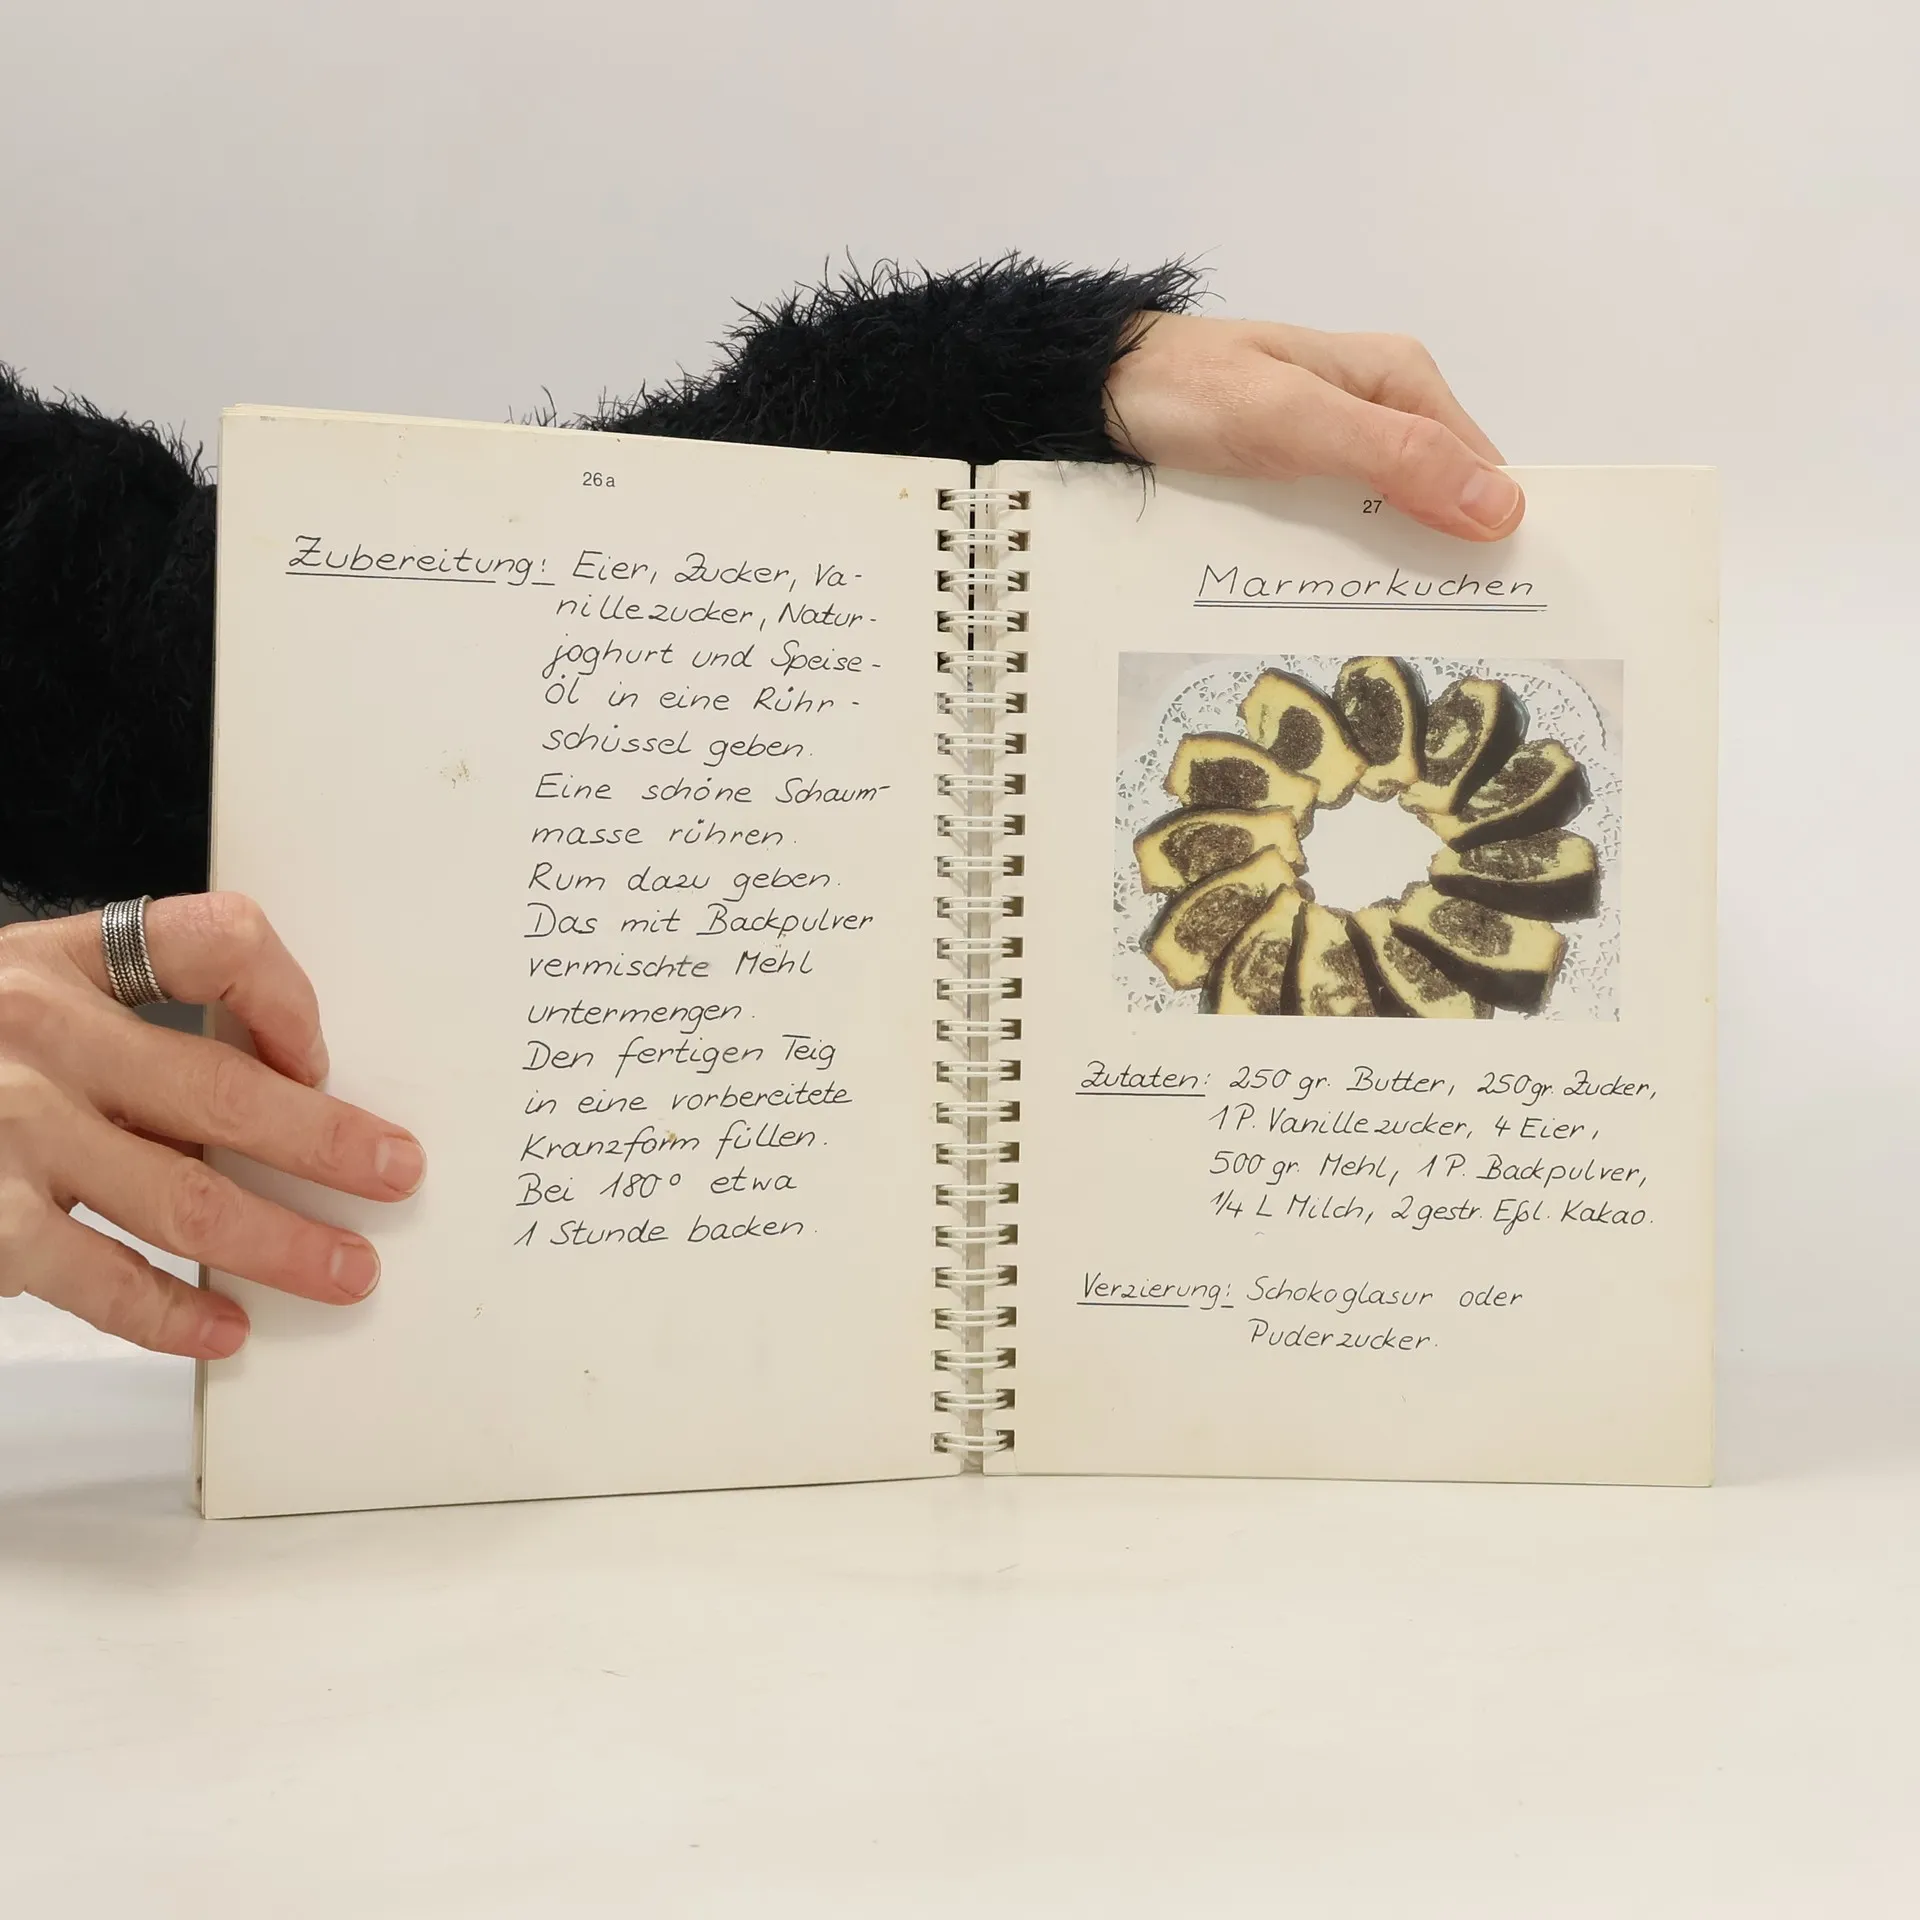 26a
Zubereitung: Eier, Zucker, Va-
nillezucker, Natur-
joghurt und Speise-
öl in eine Rühr-
schüssel geben.
Eine schöne Schaum-
masse rühren.
Rum dazu geben.
Das mit Backpulver
vermischte Mehl
untermengen.
Den fertigen Teig
in eine vorbereitete
Kranzform füllen.
Bei 180° etwa
1 Stunde backen.
27
Marmorkuchen
Zutaten: 250 gr. Butter, 250 gr. Zucker,
1 P. Vanillezucker, 4 Eier,
500 gr. Mehl, 1 P. Backpulver,
1/4 L Milch, 2 gestr. Eßl. Kakao.
Verzierung: Schokoglasur oder
Puderzucker.